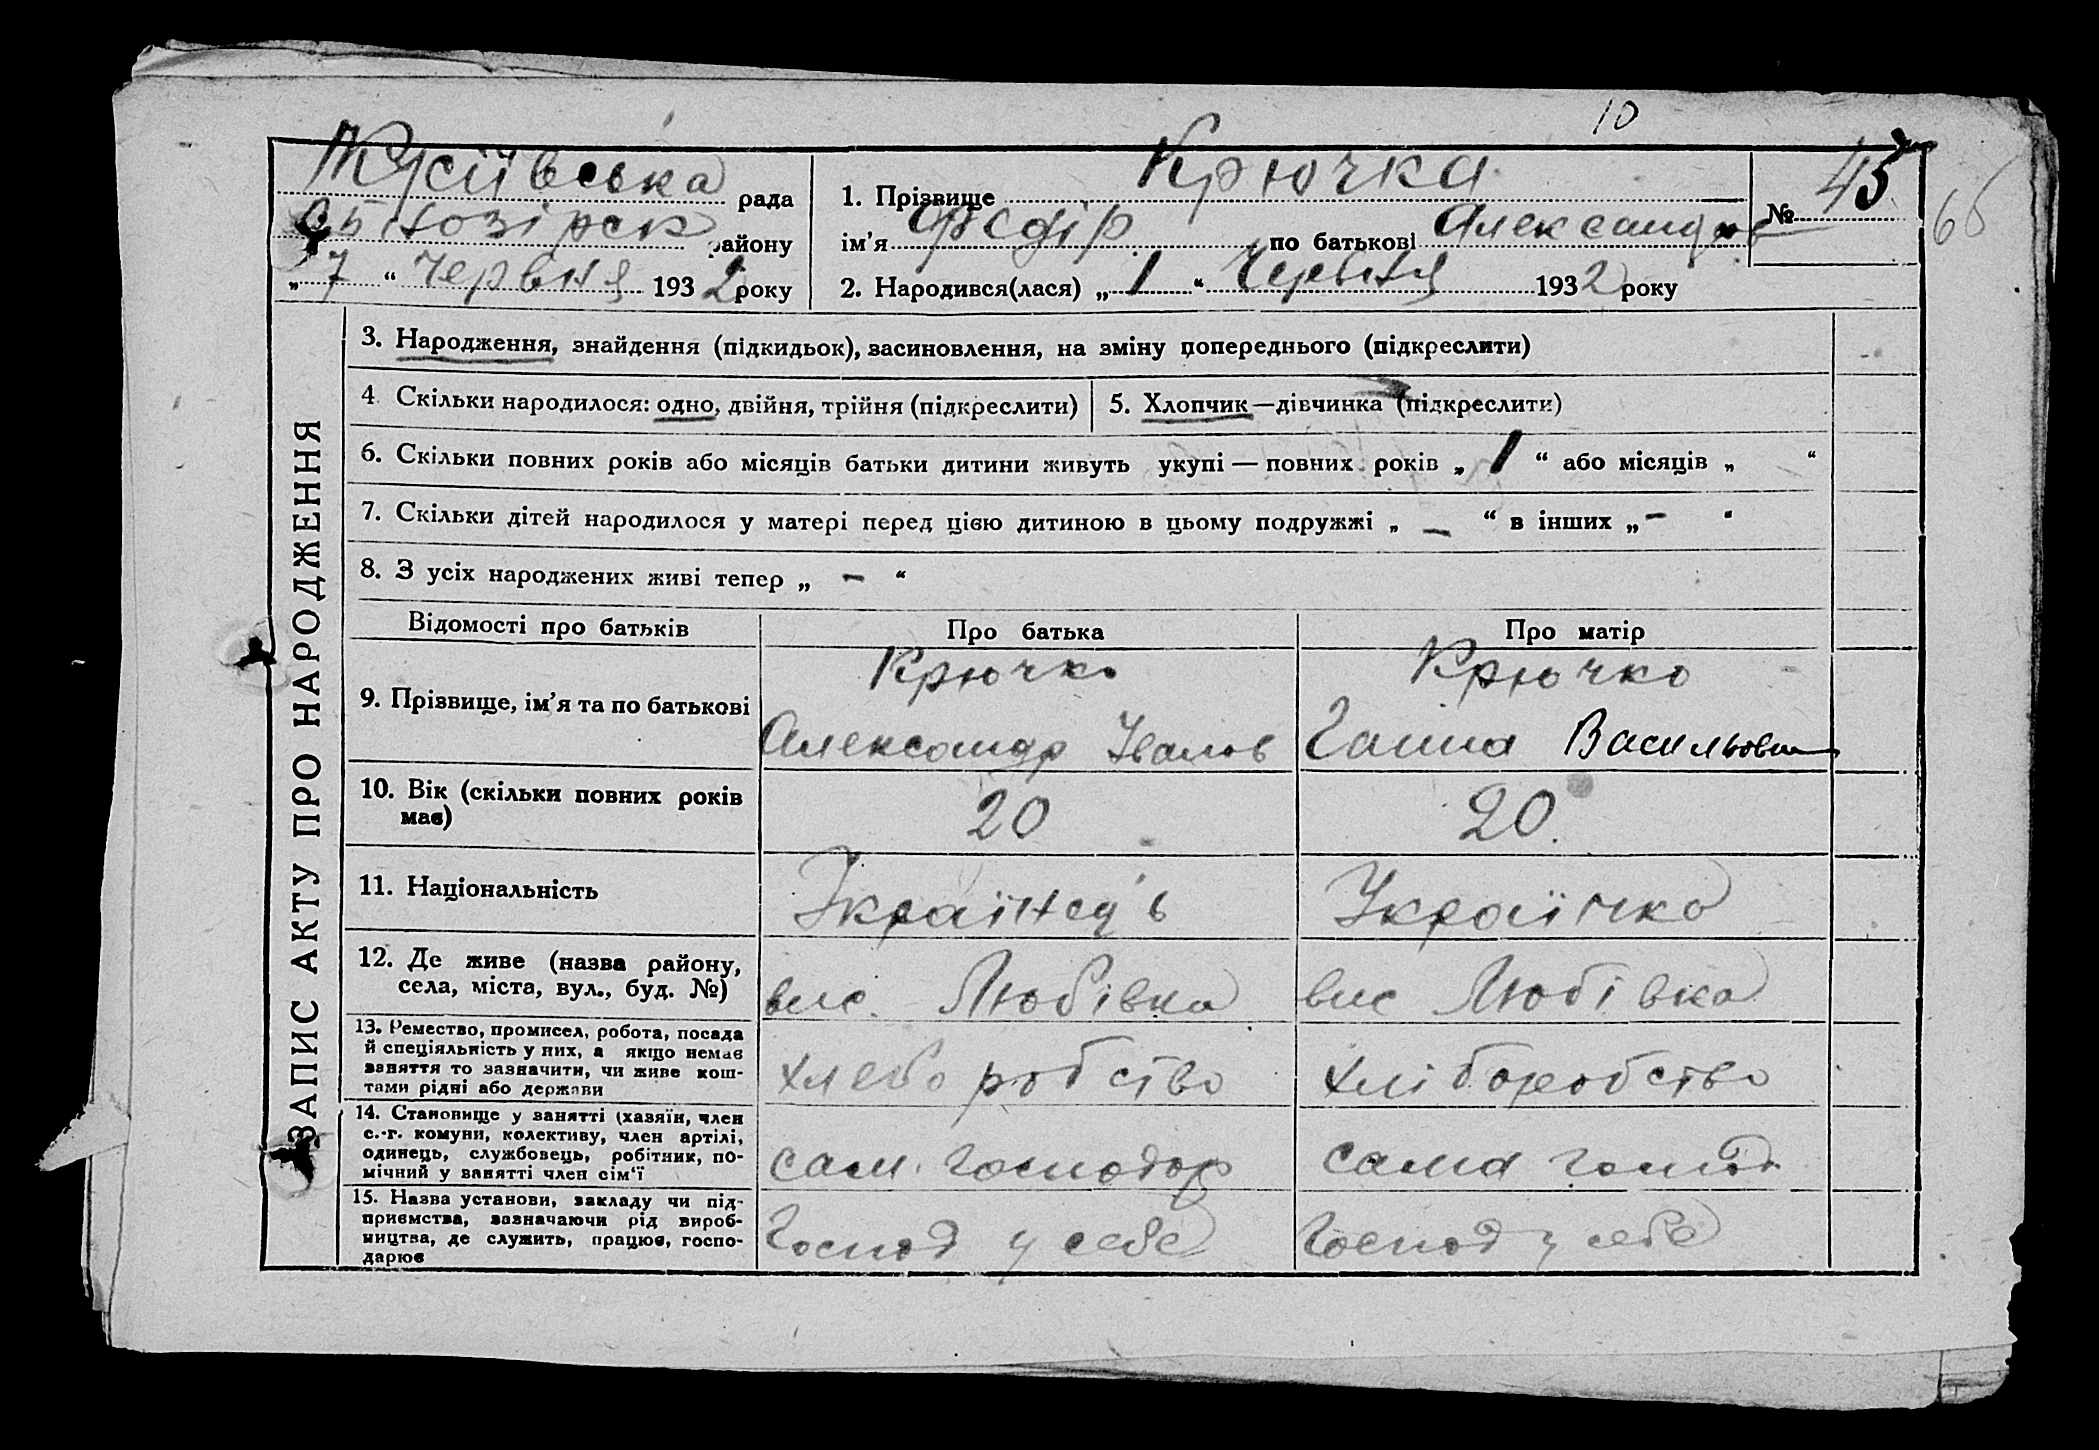 10
Жусіївська рада
району
„ 7 “ Червня 1932 року
1. Прізвище Крючка
ім’я Федір по батькові Александров
№ 45
66
2. Народився(лася) „ 1 “ Червня 1932 року
ЗАПИС АКТУ ПРО НАРОДЖЕННЯ
3. Народження, знайдення (підкидьок), засиновлення, на зміну попереднього (підкреслити)
4. Скільки народилося: одно, двійня, трійня (підкреслити)
5. Хлопчик—дівчинка (підкреслити)
6. Скільки повних років або місяців батьки дитини живуть укупі — повних років „ 1 “ або місяців „ “
7. Скільки дітей народилося у матері перед цією дитиною в цьому подружжі „ — “ в інших „ – “
8. З усіх народжених живі тепер „ – “
Відомості про батьків
Про батька
Про матір
9. Прізвище, ім’я та по батькові
Крючко
Александр Іванов
Крючко
Ганна Васильовна
10. Вік (скільки повних років
має)
20
20.
11. Національність
Українець
Українко
12. Де живе (назва району,
села, міста, вул., буд. №)
вис. Любівка
вис Любівка
13. Ремество, промисел, робота, посада
й спеціяльність у них, а якщо немає
заняття то зазначити, чи живе кош-
тами рідні або держави
хлеборобство
хліборобство
14. Становище у занятті (хазяїн, член
с.-г. комуни, колективу, член артілі,
одинець, службовець, робітник, по-
мічний у занятті член сім‘ї
сам. господор
сама господ
15. Назва установи, закладу чи під-
приємства, зазначаючи рід вироб-
ництва, де служить, працює, госпо-
дарює
Господ у себе
Господ у себе